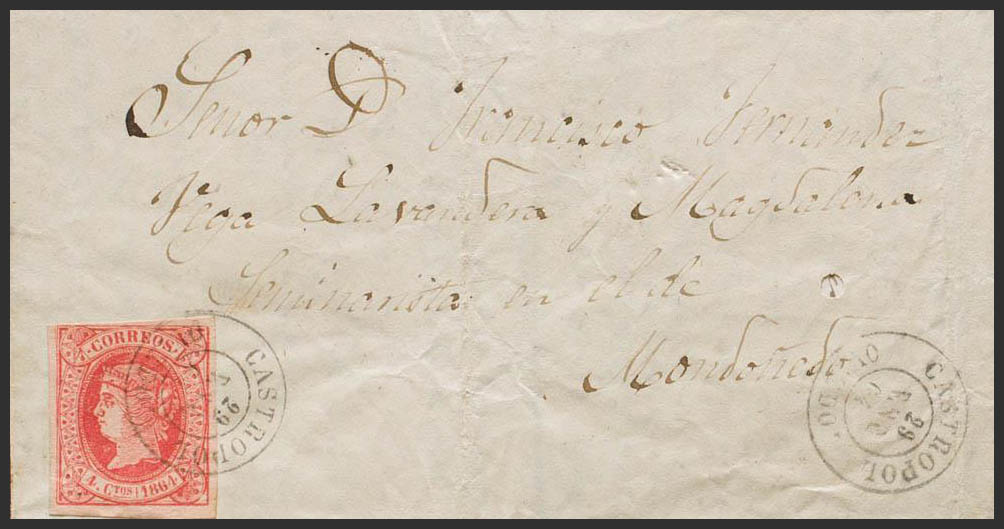 Señor D Francisco Fernandez
Vega Lavandera y Magdalena
Seminarista en el de
Mondoñedo
CORREOS
4. CTOS 1864
CASTROPOL
29
CASTROPOL
OVIEDO.
29